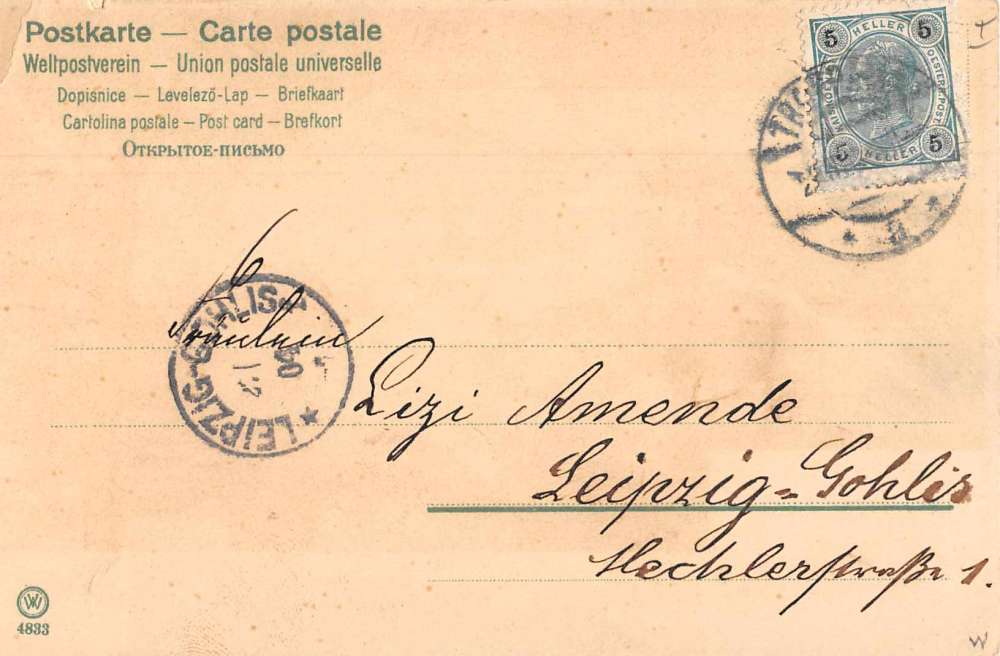 Postkarte — Carte postale
Weltpostverein — Union postale universelle
Dopisnice — Levelező-Lap — Briefkaart
Cartolina postale — Post card — Brefkort
Открытое-письмо
5 HELLER 5
KAIS. KOENIGL. OESTERR. POST.
5 HELLER 5
LEIPZIG-GOHLIS
Fräulein
Lizi Amende
Leipzig=Gohlis
Mechlerstraße 1.
W
4833
W